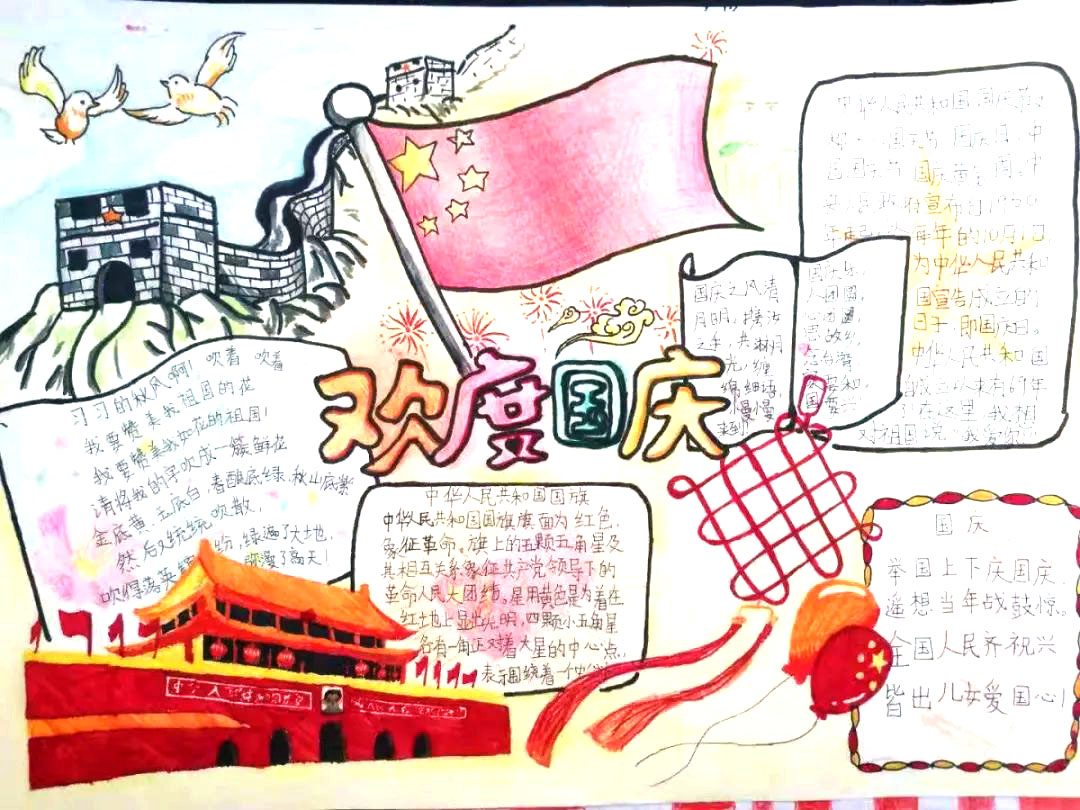 欢度国庆
习习的秋风啊！吹着 吹着
我要赞美我祖国的花
我要赞美我如花的祖国！
请将我的字吹成一簇鲜花
金底黄，玉底白，春酿底绿，秋山底紫
然后又统统吹散，
吹得落英 纷，绿遍了大地，
弥漫了高天！
中华人民共和国国旗
中华人民共和国国旗旗面为红色，
象征革命。旗上的五颗五角星及
其相互关系象征共产党领导下的
革命人民大团结。星用黄色是为着在
红土地上显出光明，四颗小五角星
各有一角正对着大星的中心点，
表示围绕着一个中心
国庆之风清
月明，
之年，共 月
光，缠
绵细语，
慢慢
来到
国庆乐，
人团圆，
心团圆，
思故乡，
中华人民共和国国庆节
国庆节 国庆日、中
国国庆节
宣布自1950
年 每年的10月1日，
为中华人民共和
国宣告成立的
日子，即国庆日。
中华人民共和国
成立以来有69年
在这里，我想
对祖国说：我爱你！
国庆
举国上下庆国庆，
遥想当年战鼓惊。
全国人民齐祝兴
皆出儿女爱国心！